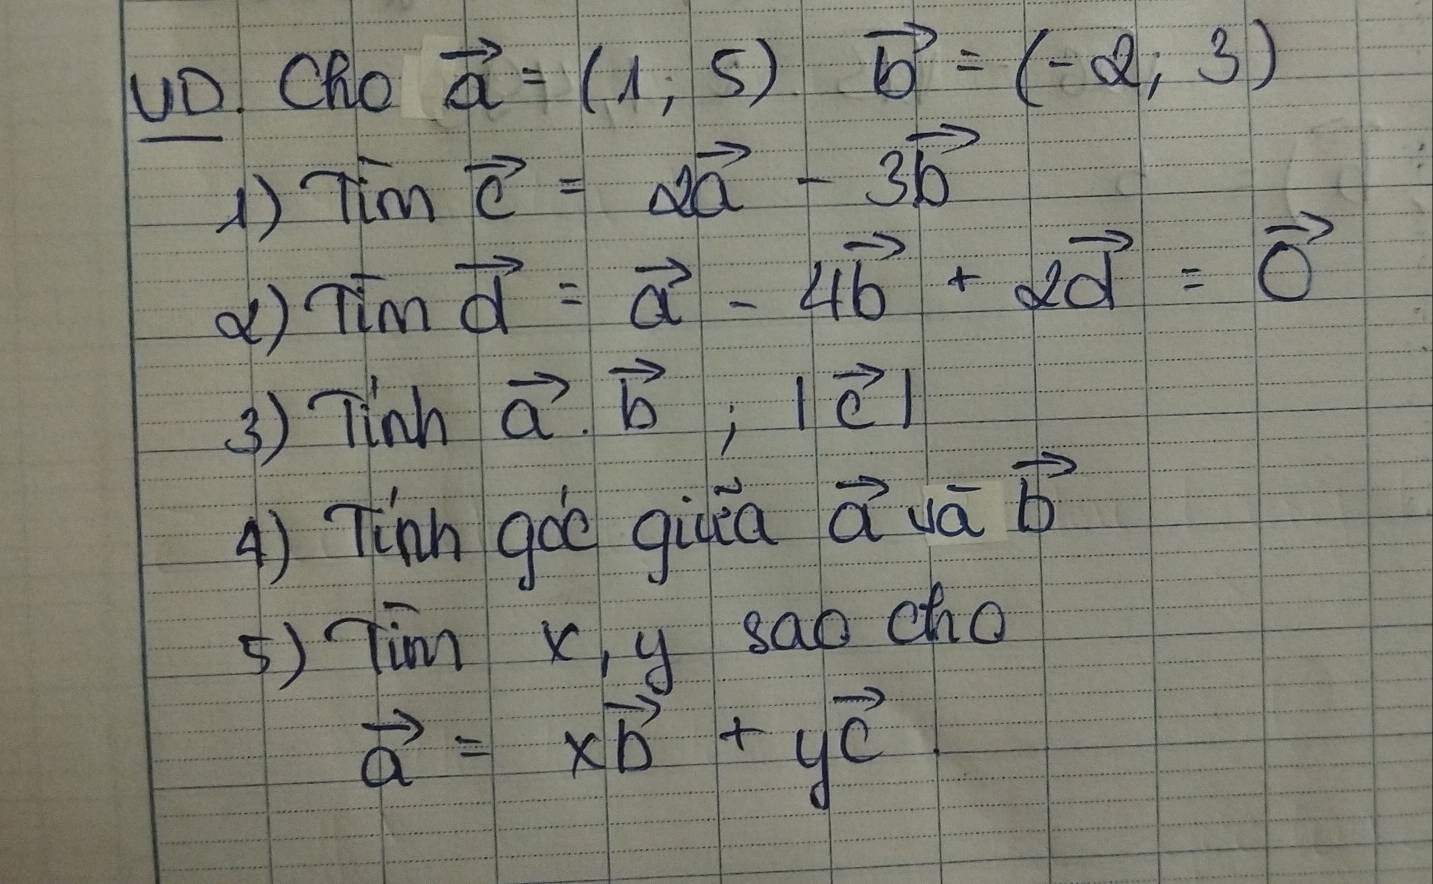 VD. Cho a⃗ = (1; 5) b⃗ = (-2; 3)
1) Tìm c⃗ = 2a⃗ - 3b⃗
2) Tìm d⃗ = a⃗ - 4b⃗ + 2d⃗ = 0⃗
3) Tính a⃗ . b⃗ ; |c⃗|
4) Tính góc giữa a⃗ và b⃗
5) Tìm x, y sao cho
a⃗ = xb⃗ + yc⃗